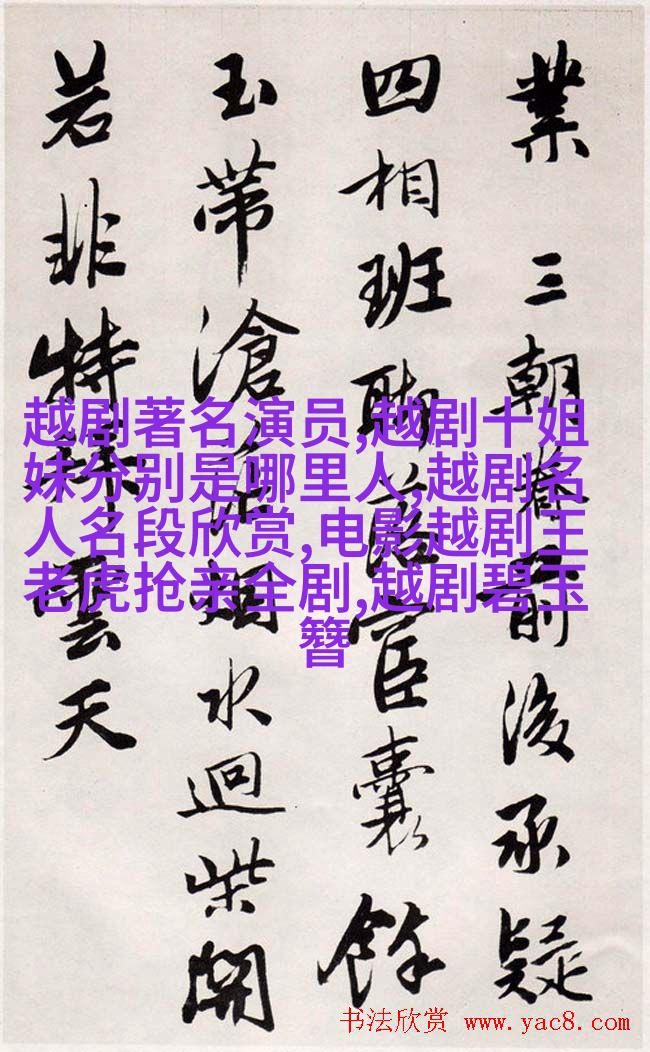 業三朝眷前後承疑
四相班聊宦囊餘
玉帶滄烟水迴柴開
若非特殊雲天
越剧著名演员,越剧十姐
妹分别是哪里人,越剧名
人名段欣赏,电影越剧王
老虎抢亲全剧,越剧碧玉
簪
书法欣赏 www.yac8.com